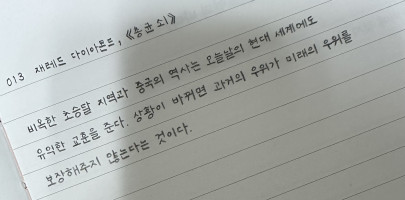 013 재레드 다이아몬드, 《총균쇠》
비옥한 초승달 지역과 중국의 역사는 오늘날의 현대 세계에도
유익한 교훈을 준다. 상황이 바뀌면 과거의 우위가 미래의 우위를
보장해주지 않는다는 것이다.